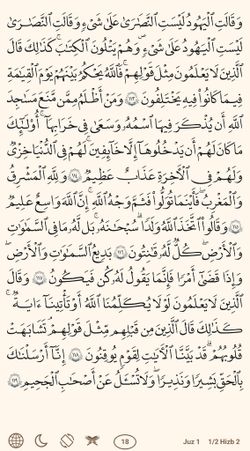 وَقَالَتِ ٱلْيَهُودُ لَيْسَتِ ٱلنَّصَٰرَىٰ عَلَىٰ شَىْءٍ وَقَالَتِ ٱلنَّصَٰرَىٰ
لَيْسَتِ ٱلْيَهُودُ عَلَىٰ شَىْءٍ وَهُمْ يَتْلُونَ ٱلْكِتَٰبَ ۗ كَذَٰلِكَ قَالَ
ٱلَّذِينَ لَا يَعْلَمُونَ مِثْلَ قَوْلِهِمْ ۚ فَٱللَّهُ يَحْكُمُ بَيْنَهُمْ يَوْمَ ٱلْقِيَٰمَةِ
فِيمَا كَانُوا۟ فِيهِ يَخْتَلِفُونَ ١١٣ وَمَنْ أَظْلَمُ مِمَّن مَّنَعَ مَسَٰجِدَ
ٱللَّهِ أَن يُذْكَرَ فِيهَا ٱسْمُهُۥ وَسَعَىٰ فِى خَرَابِهَآ ۚ أُو۟لَٰٓئِكَ
مَا كَانَ لَهُمْ أَن يَدْخُلُوهَآ إِلَّا خَآئِفِينَ ۚ لَهُمْ فِى ٱلدُّنْيَا خِزْىٌ
وَلَهُمْ فِى ٱلْءَاخِرَةِ عَذَابٌ عَظِيمٌ ١١٤ وَلِلَّهِ ٱلْمَشْرِقُ
وَٱلْمَغْرِبُ ۚ فَأَيْنَمَا تُوَلُّوا۟ فَثَمَّ وَجْهُ ٱللَّهِ ۚ إِنَّ ٱللَّهَ وَٰسِعٌ عَلِيمٌ
١١٥ وَقَالُوا۟ ٱتَّخَذَ ٱللَّهُ وَلَدًا ۗ سُبْحَٰنَهُۥ ۖ بَل لَّهُۥ مَا فِى ٱلسَّمَٰوَٰتِ
وَٱلْأَرْضِ ۖ كُلٌّ لَّهُۥ قَٰنِتُونَ ١١٦ بَدِيعُ ٱلسَّمَٰوَٰتِ وَٱلْأَرْضِ ۖ
وَإِذَا قَضَىٰٓ أَمْرًا فَإِنَّمَا يَقُولُ لَهُۥ كُن فَيَكُونُ ١١٧ وَقَالَ
ٱلَّذِينَ لَا يَعْلَمُونَ لَوْلَا يُكَلِّمُنَا ٱللَّهُ أَوْ تَأْتِينَآ ءَايَةٌ ۗ
كَذَٰلِكَ قَالَ ٱلَّذِينَ مِن قَبْلِهِم مِّثْلَ قَوْلِهِمْ ۘ تَشَٰبَهَتْ
قُلُوبُهُمْ ۗ قَدْ بَيَّنَّا ٱلْءَايَٰتِ لِقَوْمٍ يُوقِنُونَ ١١٨ إِنَّآ أَرْسَلْنَٰكَ
بِٱلْحَقِّ بَشِيرًا وَنَذِيرًا ۖ وَلَا تُسْـَٔلُ عَنْ أَصْحَٰبِ ٱلْجَحِيمِ ١١٩
18 Juz 1 1/2 Hizb 2